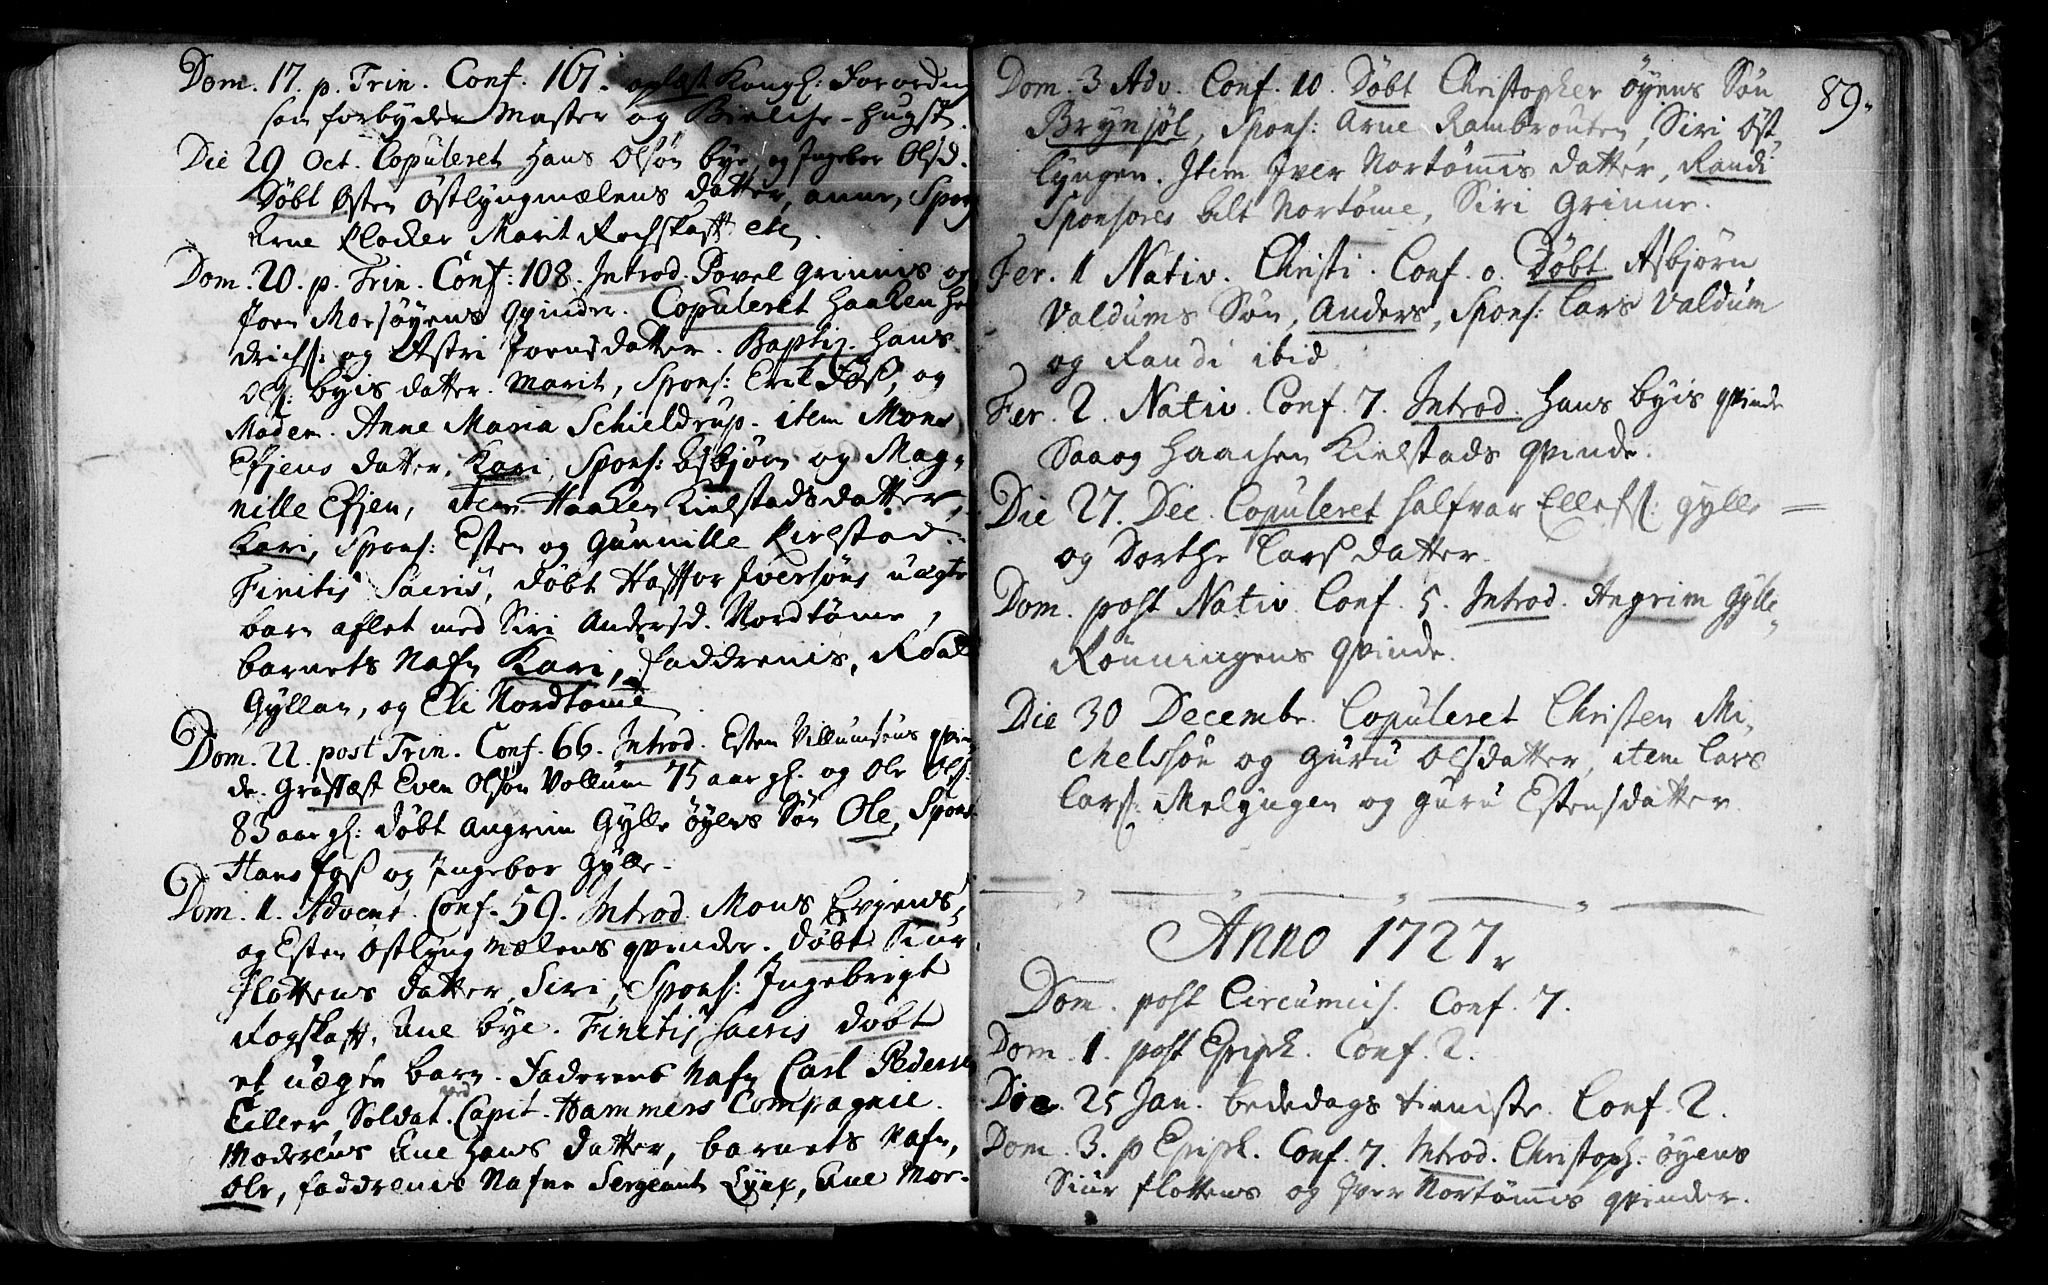 Dom. 17. p. Trin. Conf. 167. oplæst Kongl: Forordn
som forbyder Master og Bielche-hugst.
Die 29 Oct. Copuleret Hans Olsøn bye, og Ingebor Olsd.
Døbt Østen Østlyngmælens datter, anne, Spons
Arne Klocker Marit Rochskaft etc.
Dom. 20. p. Trin. Conf: 108. Introd. Povel Grinnis og
Joen Morsøyens qvinder. Copuleret Haaken He
drichs: og Astri Joensdatter. Baptiz. Hans
Ols: byis datter. Marit, Spons: Erik Foss, og
Madem. Anne Maria Schieldrup. item Mons
Efjens datter, Kari, Spons: Esbjørn og Mag-
nille Efjen, item Haaken Kielstadsdatter,
Kari, Spons: Esten og Gunnille Kielstad.
Finitis Sacris, døbt Haffor Iversøns uægte
barn aflet med Siri Andersd. Nordtøme,
barnets Nafn Kari, faddrenis, Roal
Gyllan, og Eli Nordtømme
Dom. 22. post Trin. Conf. 66. Introd. Esten Villumsens qvin
de. Grafæst Even Olsøn Vollum 75 aar gl. og Ole Ols:
83 aar gl: døbt Angrim Gylle øyens Søn Ole, Spons.
Hans foss og Ingebor Gylle.
Dom. 1. Advent. Conf. 59. Introd. Mons Evjens
og Esten Østlyng mælens qvinder. døbt Siur
flottens datter, Siri, Spons: Ingebrigt
Rogskaft, Ane bye. Finitis sacris døbt
et uægte barn. Faderens Nafn Carl Peders
Eiller, Soldat ved Capit. Hammers Compagnie.
Moderens Ane Hans datter, barnets Nafn,
Ole, faddrenis Nafne Sergeant Lyng, Ane Mor-
89.
Dom. 3 Adv. Conf. 10. Døbt Christopher øyens Søn
Brynjøl, Spons: Arne Rambrouten, Siri Øst
lyngen. Item Iver Nortømmis datter, Randi
Sponsores belt Nortøme, Siri Grinne.
Fer. 1 Nativ. Christi. Conf. 0. Døbt Asbjørn
Valdums Søn, Anders, Spons: Lars Valdum
og Randi ibid.
Fer. 2. Nativ. Conf. 7. Introd. Hans byis qvinde
Saa og Haachen Kielstads qvinde.
Die 27. Dec. Copuleret Halfvar Ellefs: Gylle
og Dorthe Lars datter.
Dom. post Nativ. Conf. 5. Introd. Angrim Gylle
Rønningens qvinde.
Die 30 Decembr. Copuleret Christen Mi-
chelsøn og Guru Olsdatter, item Lars
Lars: Melyngen og guru Estensdatter.
Anno 1727,
Dom. post Circumcis. Conf. 7.
Dom. 1. post Epiph. Conf. 2.
Die. 25 Jan. bededags tieniste. Conf. 2.
Dom. 3. p Epiph. Conf. 7. Introd. Christoph: øyens
Siur flottens og Iver Nortømmis qvinder.